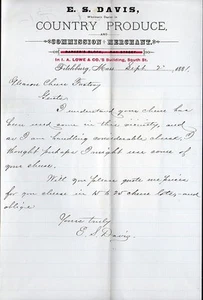 E. S. DAVIS,
Wholesale Dealer in
COUNTRY PRODUCE,
AND
COMMISSION MERCHANT.
In I. A. LOWE & CO.'S Building, South St.
Fitchburg, Mass. Sept. 2, 1881.
Cheese Factory
Gents,
I understand your cheese has
been used some in this vicinity, and
as I am handling considerable cheese I
thought perhaps I might use some of
your cheese.
Will you please quote me prices
for your cheese in 15 to 25 cheese lots, and
oblige
Yours truly,
E. S. Davis